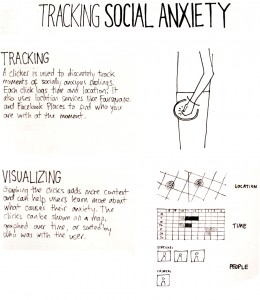 TRACKING SOCIAL ANXIETY
TRACKING
A clicker is used to discretely track
moments of socially anxious feelings.
Each click logs time and location. It
also uses location services like Foursquare
and Facebook Places to find who you
are with at the moment.
VISUALIZING
Graphing the clicks adds more context
and can help users learn more about
what causes their anxiety. The
clicks can be shown on a map,
graphed over time, or sorted by
who was with the user.
LOCATION
TIME
PEOPLE